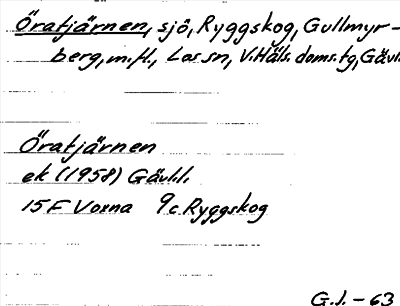 Öratjärnen, sjö, Ryggskog, Gullmyr-
berg, m.fl., Los sn, V.Häls. doms.tg, Gävl.
Öratjärnen
ek (1958) Gävl.l.
15F Voxna 9c Ryggskog
G.J. - 63